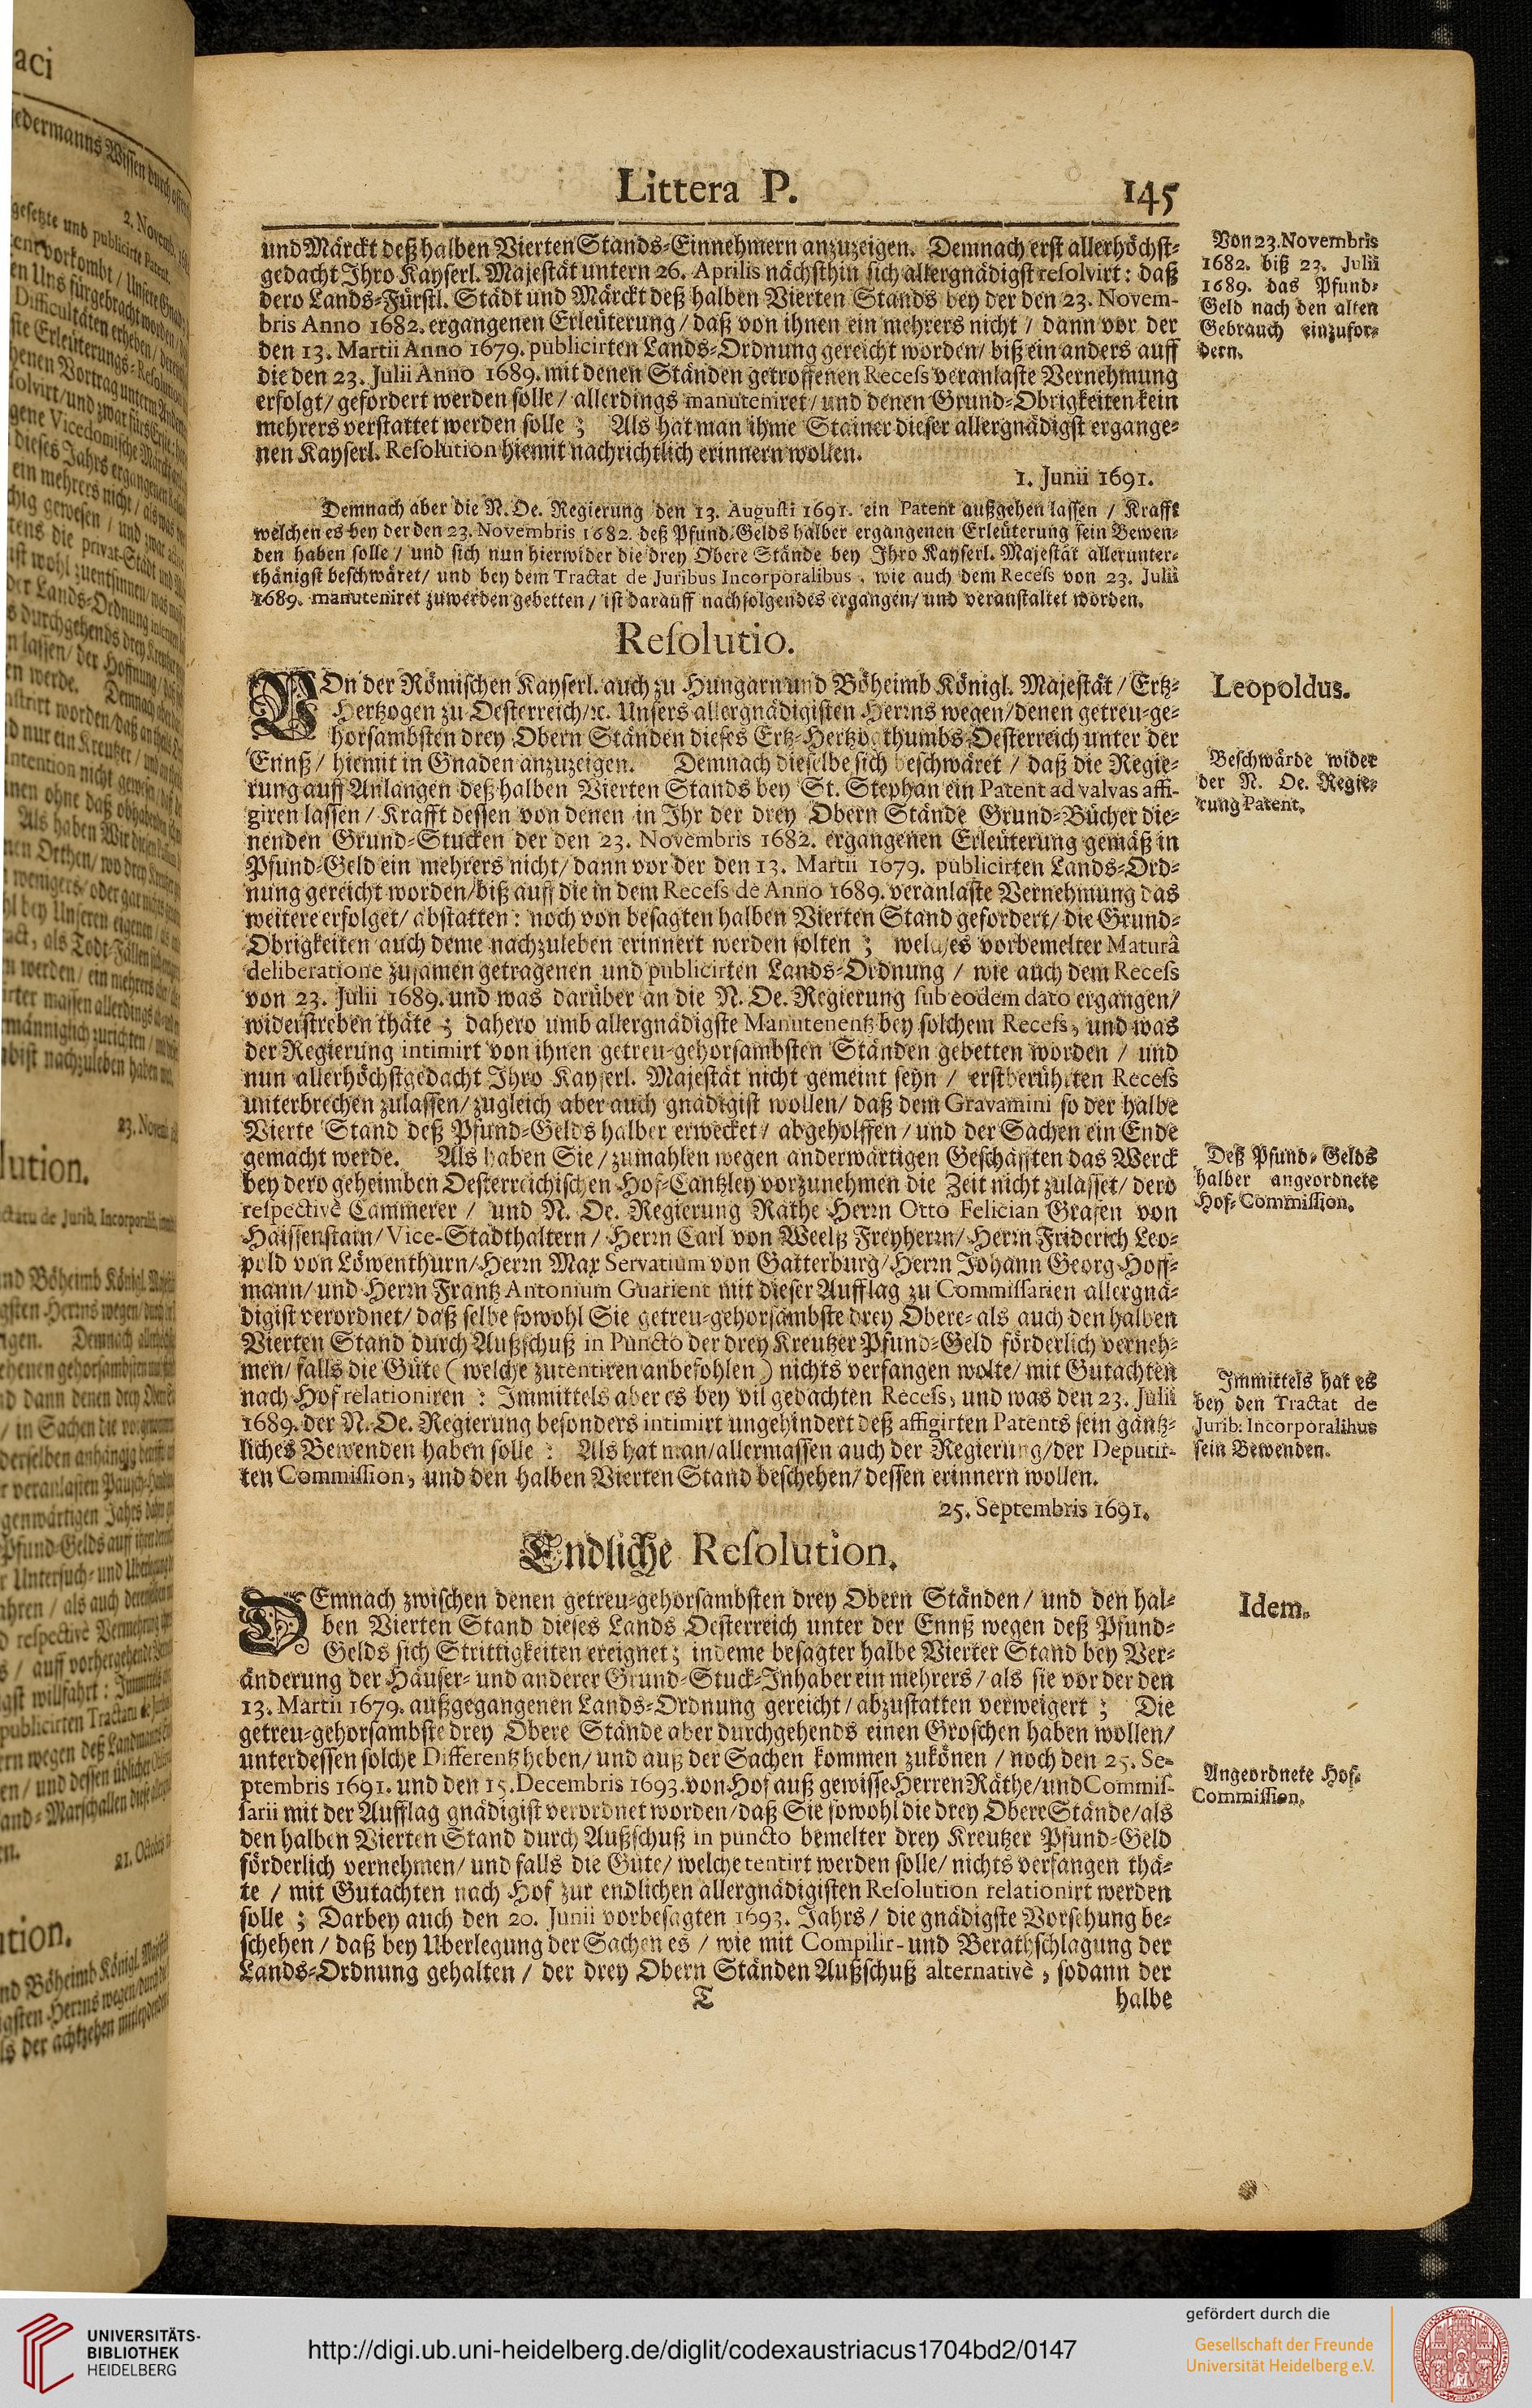 Littera P. 145
und Märckt deß halben Vierten Stands-Einnehmern anzuzeigen. Demnach erst allerhöchst-
gedacht Ihro Kayserl. Majestät untern 26. Aprilis nächsthin sich allergnädigst resolvirt: daß
dero Lands-Fürstl. Städt und Märckt deß halben Vierten Stands bey der den 23. Novem-
bris Anno 1682. ergangenen Erleüterung / daß von ihnen ein mehrers nicht / dann vor der
den 13. Martii Anno 1679. publicirten Lands-Ordnung gereicht worden / biß ein anders auff
die den 23. Julii Anno 1689. mit denen Ständen getroffenen Recess veranlaste Vernehmung
erfolgt / gefordert werden solle / allerdings manuteniret / und denen Grund-Obrigkeiten kein
mehrers verstattet werden solle ; Als hat man ihme Stainer dieser allergnädigst ergange-
nen Kayserl. Resolution hiemit nachrichtlich erinnern wollen.
1. Junii 1691.
Demnach aber die N. Oe. Regierung den 13. Augusti 1691. ein Patent außgehen lassen / Krafft
welchen es bey der den 23. Novembris 1682. deß Pfund-Gelds halber ergangenen Erleüterung sein Bewen-
den haben solle / und sich nun hierwider die drey Obere Stände bey Ihro Kayserl. Majestät allerunter-
thänigst beschwäret / und bey dem Tractat de Juribus Incorporalibus , wie auch dem Recess von 23. Julii
1689. manuteniret zuwerden gebetten / ist darauff nachfolgendes ergangen / und veranstaltet worden.
Von 23. Novembris
1682. biß 23. Julii
1689. das Pfund-
Geld nach den alten
Gebrauch einzufor-
dern.
Resolutio.
VOn der Römischen Kayserl. auch zu Hungarn und Böheimb Königl. Majestät / Ertz-
Hertzogen zu Oesterreich / ꝛc. Unsers allergnädigisten Herrns wegen / denen getreu-ge-
horsambsten drey Obern Ständen dieses Ertz-Hertzogthumbs Oesterreich unter der
Ennß / hiemit in Gnaden anzuzeigen. Demnach dieselbe sich beschwäret / daß die Regie-
rung auff Anlangen deß halben Vierten Stands bey St. Stephan ein Patent ad valvas affi-
giren lassen / Krafft dessen von denen in Ihr der drey Obern Stände Grund-Bücher die-
nenden Grund-Stucken der den 23. Novembris 1682. ergangenen Erleüterung gemäß in
Pfund-Geld ein mehrers nicht / dann vor der den 13. Martii 1679. publicirten Lands-Ord-
nung gereicht worden / biß auff die in dem Recess de Anno 1689. veranlaste Vernehmung das
weitere erfolget / abstatten : noch von besagten halben Vierten Stand gefordert / die Grund-
Obrigkeiten auch deme nachzuleben erinnert werden solten ; welches vorbemelter Maturâ
deliberatione zusamen getragenen und publicirten Lands-Ordnung / wie auch dem Recess
von 23. Julii 1689. und was darüber an die N. Oe. Regierung sub eodem dato ergangen /
widerstreben thäte ; dahero umb allergnädigste Manutenentz bey solchem Recess , und was
der Regierung intimirt von ihnen getreu-gehorsambsten Ständen gebetten worden / und
nun allerhöchstgedacht Ihro Kayserl. Majestät nicht gemeint seyn / erstberührten Recess
unterbrechen zulassen / zugleich aber auch gnädigist wollen / daß dem Gravamini so der halbe
Vierte Stand deß Pfund-Gelds halber erwecket / abgeholffen / und der Sachen ein Ende
gemacht werde. Als haben Sie / zumahlen wegen anderwärtigen Geschäfften das Werck
bey dero geheimben Oesterreichischen Hof-Cantzley vorzunehmen die Zeit nicht zulasset / dero
respectivè Cammerer / und N. Oe. Regierung Räthe Herrn Otto Felician Grafen von
Haissenstain / Vice-Stadthaltern / Herrn Carl von Weeltz Freyherrn / Herrn Friderich Leo-
pold von Löwenthurn / Herrn Max Servatium von Gatterburg / Herrn Johann Georg Hoff-
mann / und Herrn Frantz Antonium Guarient mit dieser Aufflag zu Commissarien allergnä-
digist verordnet / daß selbe sowohl Sie getreu-gehorsambste drey Obere- als auch den halben
Vierten Stand durch Außschuß in Puncto der drey Kreutzer Pfund-Geld förderlich verneh-
men / falls die Güte ( welche zutentiren anbefohlen ) nichts verfangen wolte / mit Gutachten
nach Hof relationiren : Immittels aber es bey vil gedachten Recess, und was den 23. Julii
1689. der N. Oe. Regierung besonders intimirt ungehindert deß affigirten Patents sein gäntz-
liches Bewenden haben solle : Als hat man / allermassen auch der Regierung / der Deputir-
ten Commission, und den halben Vierten Stand beschehen / dessen erinnern wollen.
25. Septembris 1691.
Leopoldus.
Beschwärde wider
der N. Oe. Regie-
rung Patent.
Deß Pfund-Gelds
halber angeordnete
Hof-Commission.
Immittels hat es
bey den Tractat de
Jurib: Incorporalibus
sein Bewenden.
Endliche Resolution.
DEmnach zwischen denen getreu-gehorsambsten drey Obern Ständen / und den hal-
ben Vierten Stand dieses Lands Oesterreich unter der Ennß wegen deß Pfund-
Gelds sich Strittigkeiten ereignet ; indeme besagter halbe Vierter Stand bey Ver-
änderung der Häuser- und anderer Grund-Stuck-Inhaber ein mehrers / als sie vor der den
13. Martii 1679. außgegangenen Lands-Ordnung gereicht / abzustatten verweigert ; Die
getreu-gehorsambste drey Obere Stände aber durchgehends einen Groschen haben wollen /
unterdessen solche Differentz heben / und auß der Sachen kommen zukönen / noch den 25. Se-
ptembris 1691. und den 15. Decembris 1693. von Hof auß gewisse Herren Räthe / und Commis-
sarii mit der Aufflag gnädigist verordnet worden / daß Sie sowohl die drey Obere Stände / als
den halben Vierten Stand durch Außschuß in puncto bemelter drey Kreutzer Pfund-Geld
förderlich vernehmen / und falls die Güte / welche tentirt werden solle / nichts verfangen thä-
te / mit Gutachten nach Hof zur endlichen allergnädigisten Resolution relationirt werden
solle ; Darbey auch den 20. Junii vorbesagten 1693. Jahrs / die gnädigste Vorsehung be-
schehen / daß bey Uberlegung der Sachen es / wie mit Compilir- und Berathschlagung der
Lands-Ordnung gehalten / der drey Obern Ständen Außschuß alternativè , sodann der
T halbe
Idem.
Angeordnete Hof-
Commission.
UNIVERSITÄTS-
BIBLIOTHEK
HEIDELBERG
http://digi.ub.uni-heidelberg.de/diglit/codexaustriacus1704bd2/0147
gefördert durch die
Gesellschaft der Freunde
Universität Heidelberg e.V.